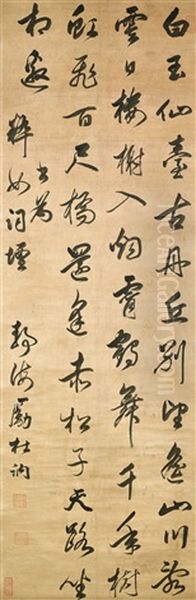 白玉仙臺古丹丘別望遙山川亂
雲日樓榭入烟霄鶴舞千年樹
虹飛百尺橋還逢赤松子天路坐
相邀
書為
粹如詞壇
靜海勵杜訥